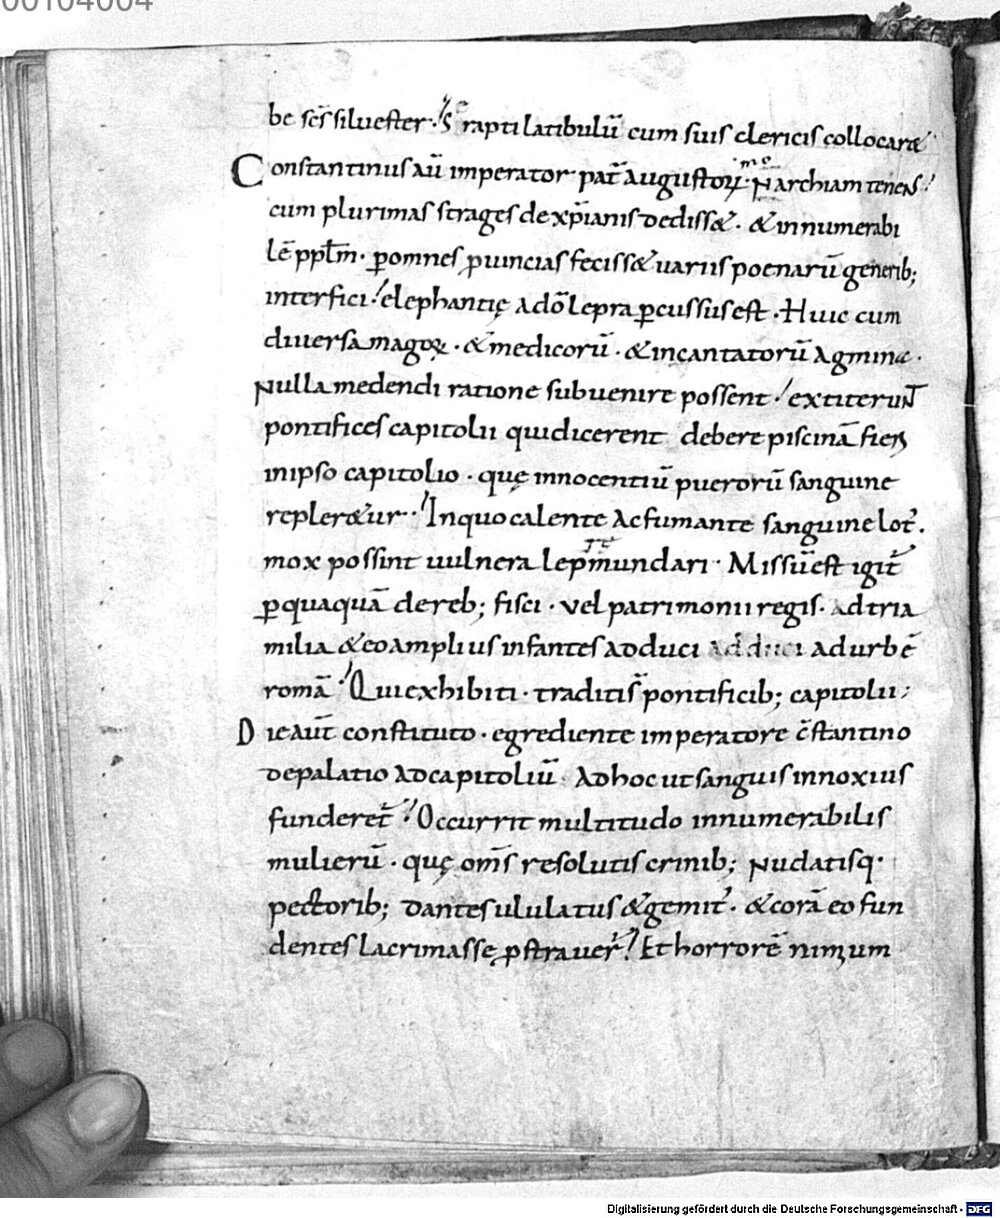 00104004
be scs̄ siluester·' Srapti latibulū cum suis clericis collocar&
Constantinus aū imperator· pat̄ augustoꝝ· monarchiam tenens·'
cum plurimas strages de xp̄ianis dediss&· & innumerabi
lē ppl̄m· ꝑ omnes ꝓuincias feciss& uariis poenarū generib;
interfici·' elephantię a dō lepra ꝑcussus est· Huic cum
diuersa magoꝝ· & medicorū· & incantatorū agmina·
Nulla medendi ratione subuenire possent·' extiterunt
pontifices capitolii qui dicerent debere piscinā fieri
in ipso capitolio· quę innocentiū puerorū sanguine
repler&ur·' In quo calente ac fumante sanguine lot᾿.
mox possint uulnera lep̄ mundari· Missū est igit᾿
ꝑ quaquā de reb; fisci· vel patrimonii regis· ad tria
milia & eo amplius infantes adduci adduci ad urbē
romā·' Qui exhibiti· traditis̄ pontificib; capitolii;
Die aūt constituto· egrediente imperatore c̄stantino
de palatio ad capitoliū· Ad hoc ut sanguis innoxius
funderet᾿·' Occurrit multitudo innumerabilis
mulierū· quę om̄s resolutis crinib; nudatisq·
pectorib; dantes ululatus & gemit᾿· & corā eo fun
dentes lacrimas se ꝓstrauer̄·' Et horrorē nimium
Digitalisierung gefördert durch die Deutsche Forschungsgemeinschaft - DFG